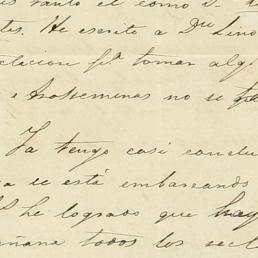 tanto el como D.
tes. He escrito a Dn Lino
tomar alg
e Arosemenas no se
Ya tengo casi conclu
a se está embarcando
he logrado que hay
ñana todos los